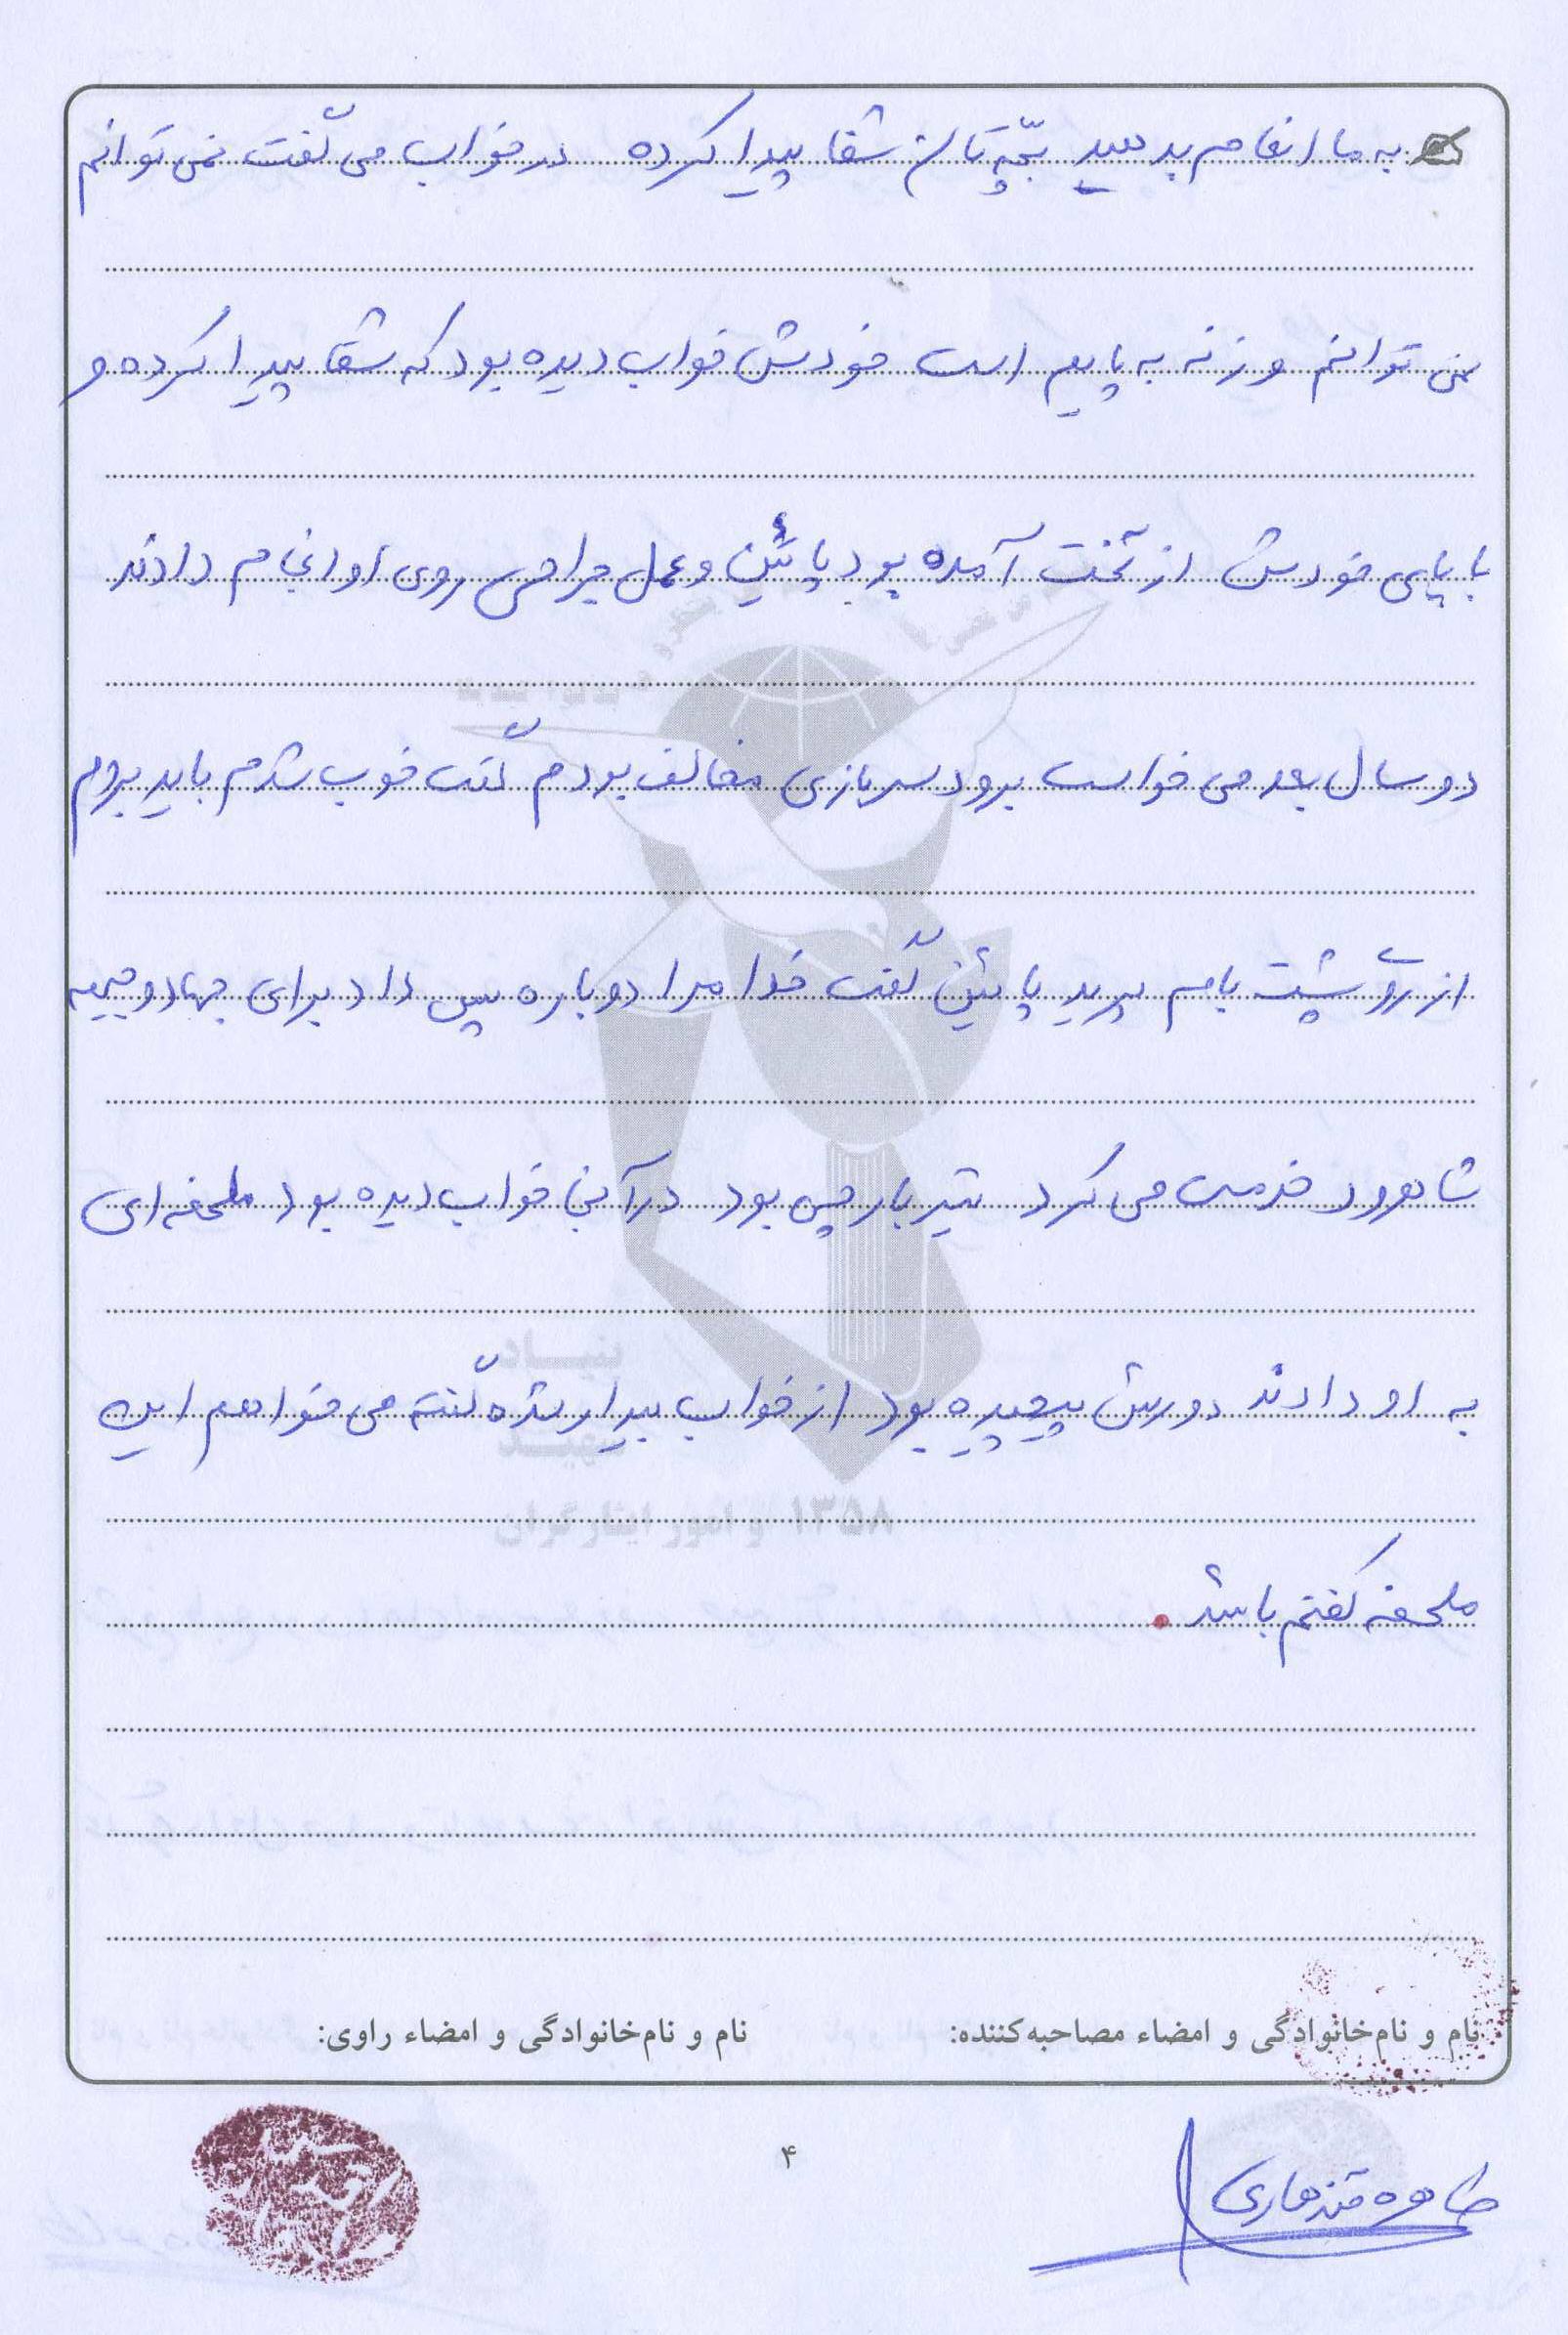 به ما انعام بدهید بچّه‌تان شفا پیدا کرده در خواب می گفت نمی توانم
نمی توانم وزنه به پایم است خودش خواب دیده بود که شفا پیدا کرده و
با پای خودش از تخت آمده بود پائین و عمل جراحی روی او انجام دادند
دو سال بعد می خواست برود سربازی مخالف بودم گفت خوب شدم باید بروم
از رو پشت بام پرید پائین گفت خدا مرا دوباره پس داد برای جهاد و جبهه
شاهرود خدمت می کرد تیربارچی بود در آنجا خواب دیده بود ملحفه ای
به او دادند دورش پیچیده بود از خواب بیدار شده گفته می خواهم این
ملحفه کفنم باشد.
بنیاد
شهید
و امور ایثارگران ۱۳۵۸
نام و نام‌خانوادگی و امضاء مصاحبه‌کننده: نام و نام‌خانوادگی و امضاء راوی:
۴
طاهره قندهاری